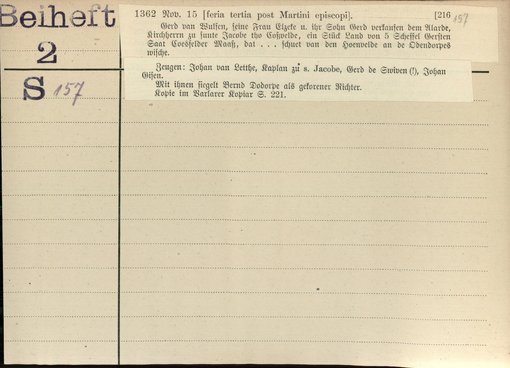 Beiheft
2
S 157
1362 Nov. 15 [feria tertia post Martini episcopi]. [216 157
Gerd van Wulsen, seine Frau Elzeke u. ihr Sohn Gerd verkaufen dem Alarde,
Kirchherrn zu sunte Jacobe tho Coswelde, ein Stück Land von 5 Scheffel Gersten
Saat Coesfelder Maaß, dat . . . schuet van den Hoenvelde an de Odendorpes
wische.
Zeugen: Johan van Letthe, Kaplan zu s. Jacobe, Gerd de Swiven (!), Johan
Gisen.
Mit ihnen siegelt Bernd Dodorpe als gekorener Richter.
Kopie im Varlarer Kopiar S. 221.